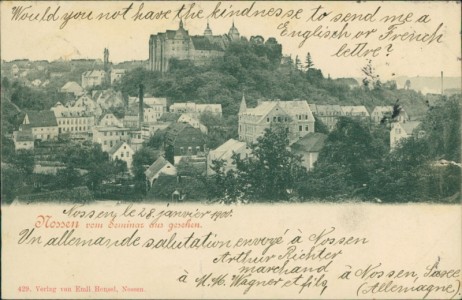 Would you not have the kindnesse to send me a
Englisch or French
lettre?
Nossen vom Seminar aus gesehen.
Nossen, le 28 janvier 1900.
Un allemande salutation envoyé à Nossen
Arthur Richter
marchand
à M. M. Wagner et fils
à Nossen, Saxe
(Allemagne)
429. Verlag von Emil Hensel, Nossen.